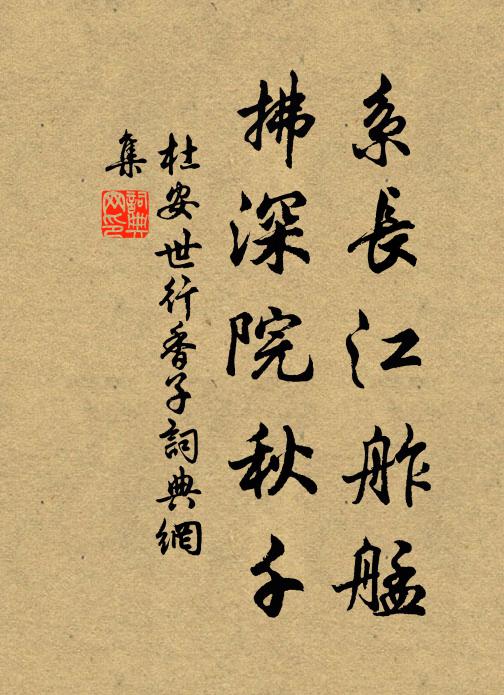 系長江舴艋
拂深院秋千
杜安世行香子詞典網
集
詞典
网印